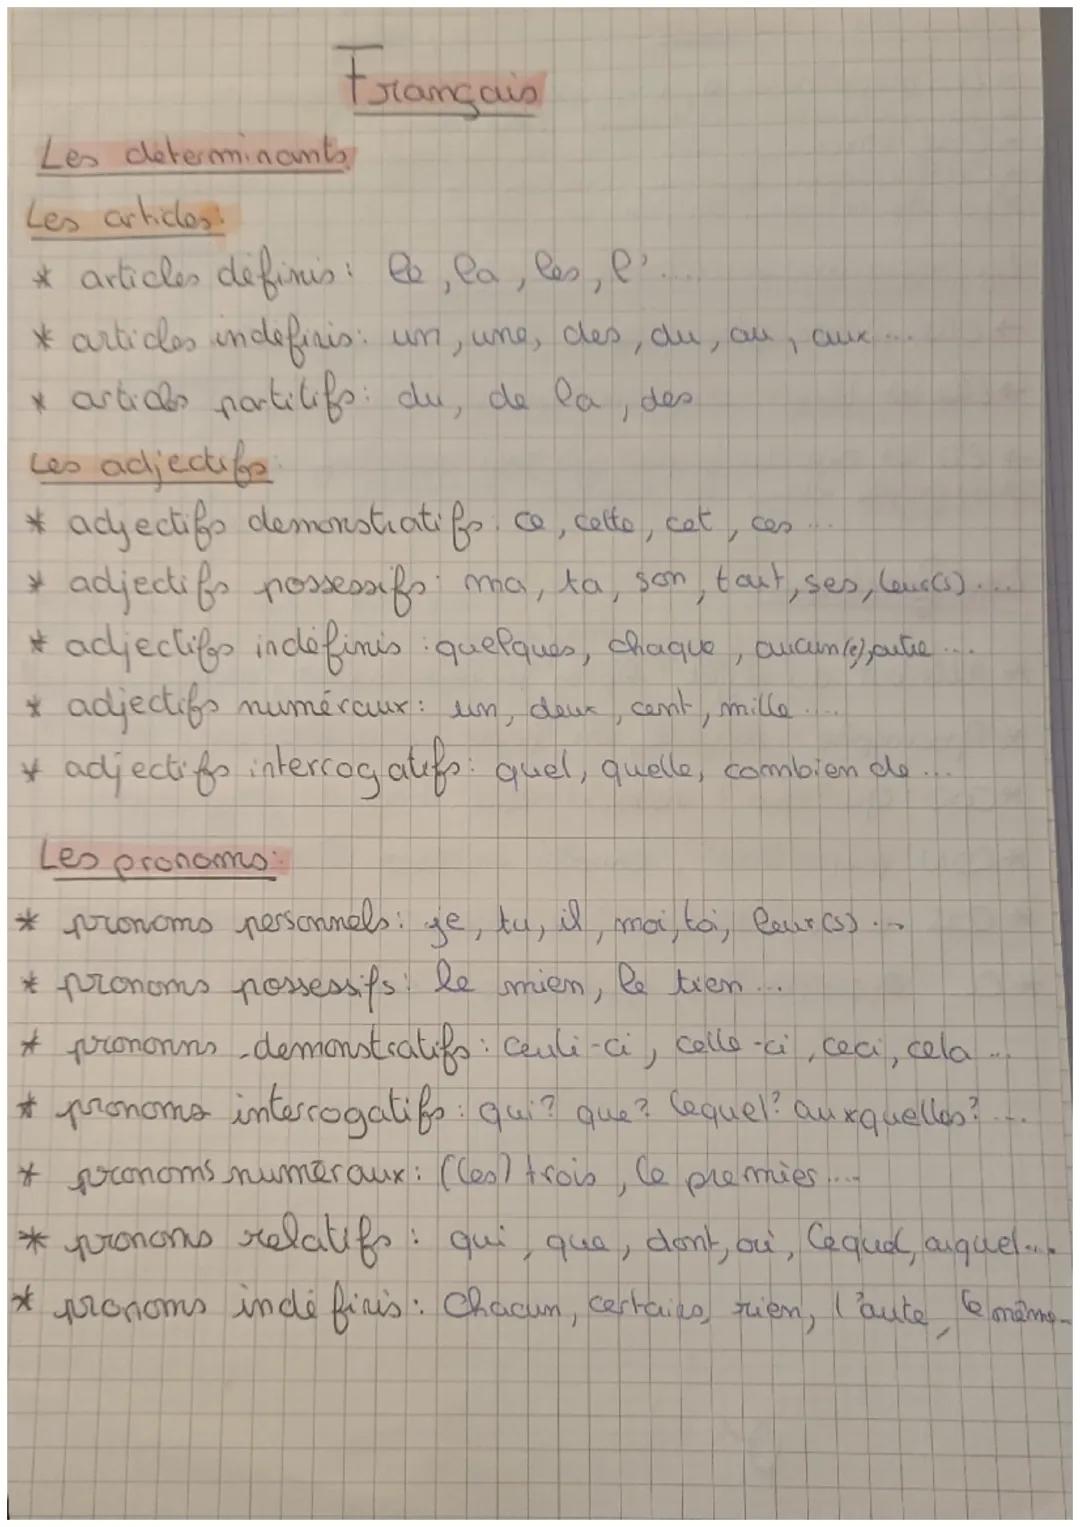 Français
Les déterminants
Les articles:
* articles définis: le, la, les, l'....
* articles indéfinis: un, une, des, du, au, aux ...
* articles partitifs: du, de la, des
Les adjectifs:
* adjectifs demonstratifs: ce, cette, cet, ces ...
* adjectifs possessifs: ma, ta, son, tout, ses, leur(s)....
* adjectifs indéfinis: quelques, chaque, aucun(e), autre ...
* adjectifs numéraux: un, deux, cent, mille ....
* adjectifs interrogatifs: quel, quelle, combien de ...
Les pronoms:
* pronoms personnels: je, tu, il, moi, toi, leur(s) ...
* pronoms possessifs: le mien, le tien ...
* pronoms demonstratifs: ceuli-ci, celle-ci, ceci, cela ...
* pronoms interrogatifs: qui? que? lequel? auxquelles? ...
* pronoms numéraux: (les) trois, le premier ....
* pronoms relatifs: qui, que, dont, où, lequel, auquel....
* pronoms indéfinis: Chacun, certains, rien, l'aute, le même..